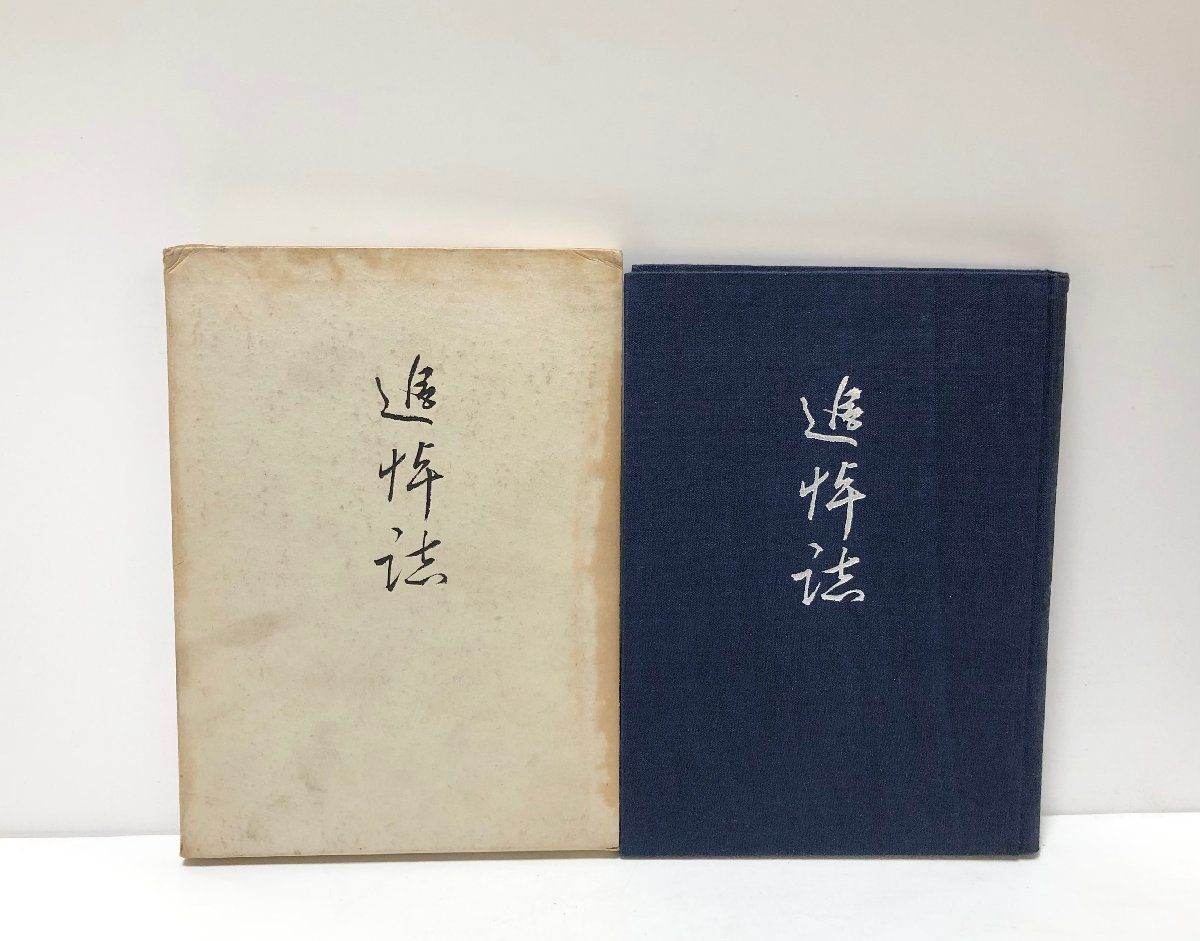 追悼誌
追悼誌